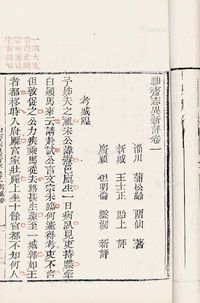 聊齋志異新評卷一
淄川 蒲松齡 留仙 著
新城 王士正 貽上 評
廣順 但明倫 雲湖 新評
考城隍
予姊夫之祖宋公諱燾邑廩生一日病臥見吏持牒牽
白顛馬來云請赴試公言文宗未臨何遽得考吏不言
但敦促之公力疾乘馬從去路甚生疎至一城郭如王
者都移時入府廨宮室壯麗上坐十餘官都不知何人
一部大文